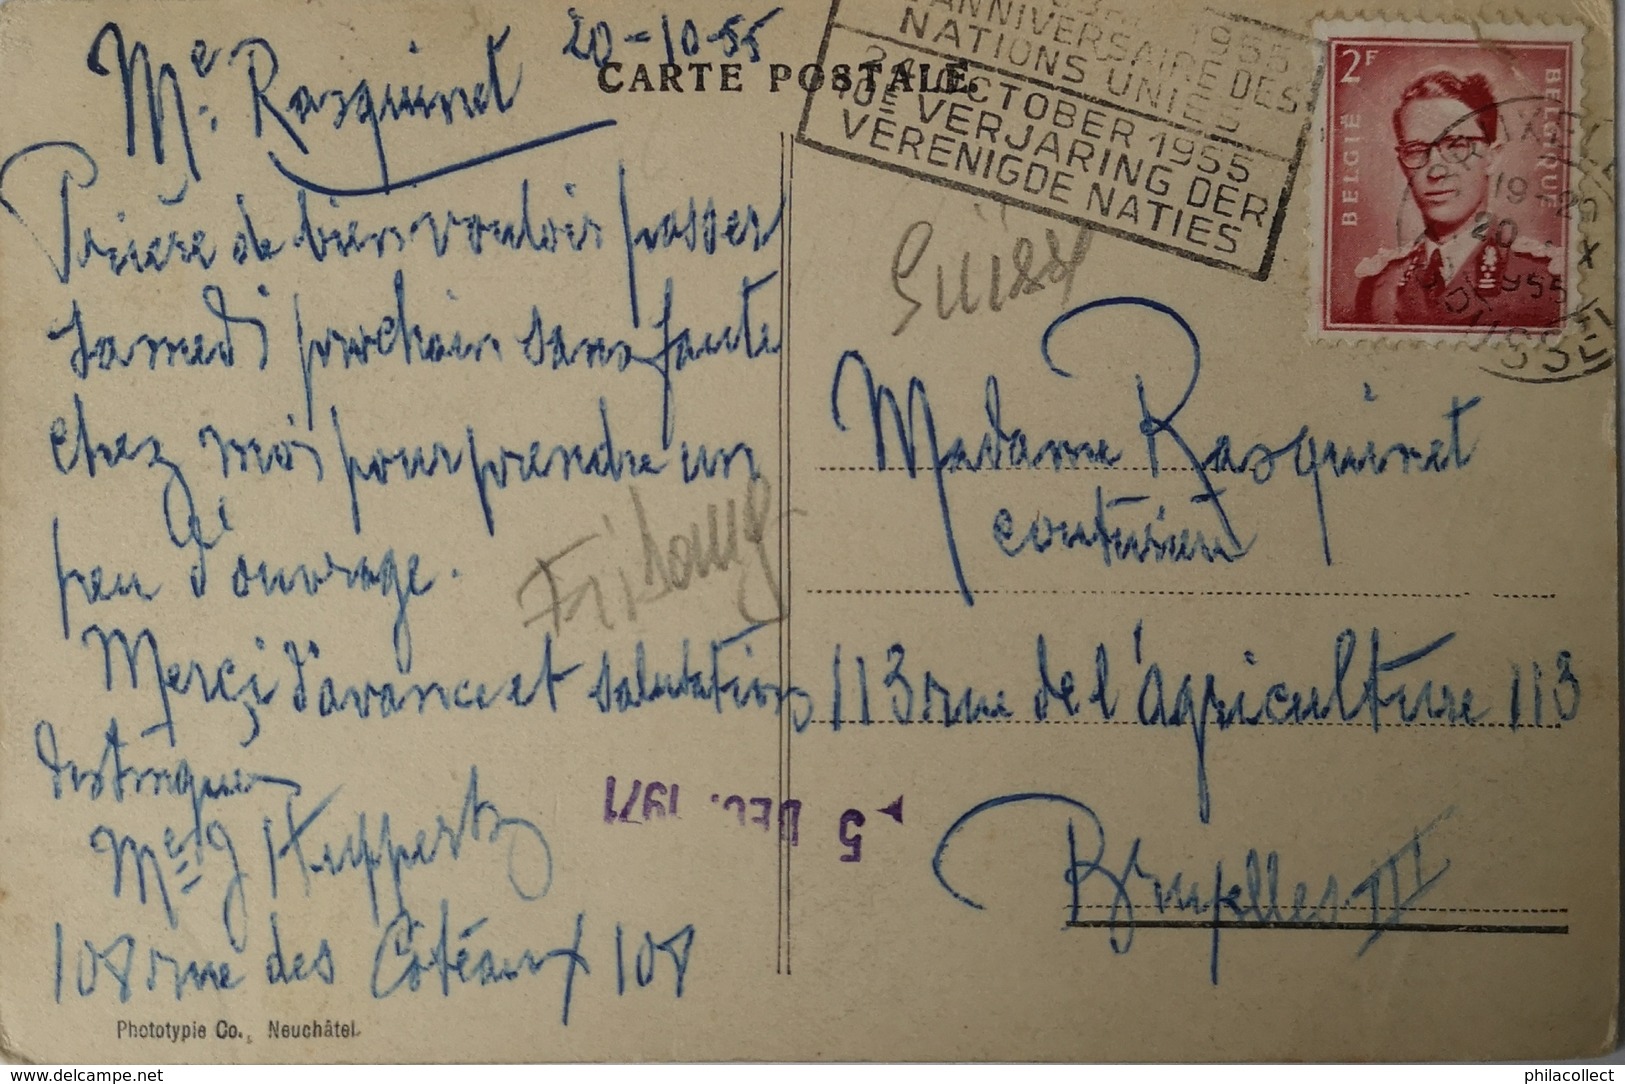 20-10-55
CARTE POSTALE.
Me Rasquinet
Prière de bien vouloir passer
samedi prochain sans faute
chez moi pour prendre un
peu d'ouvrage.
Merci d'avance et salutations
distinguées
Me J Huppertz
108 rue des Côteaux 108
Phototypie Co., Neuchâtel
1955
ANNIVERSAIRE DES
NATIONS UNIES
24 OCTOBER 1955
10E VERJARING DER
VERENIGDE NATIES
2F
BELGIË
BELGIQUE
BRUXELLES
19-20
20 X
1955
BRUSSEL
Suisse
Fribourg
Madame Rasquinet
113 rue de l'Agriculture 113
Bruxelles III
5 DEC. 1971
delcampe.net
philacollect